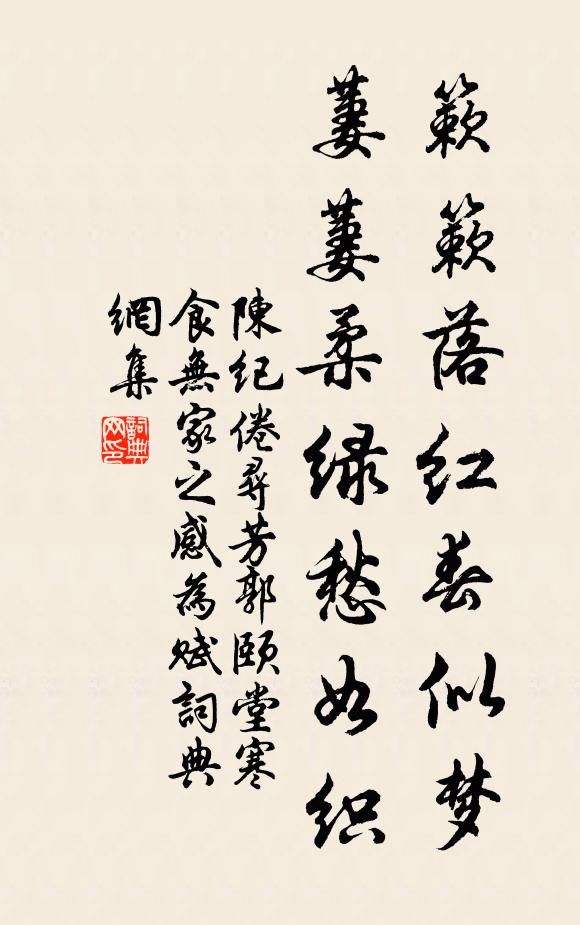 簌簌落红春似梦
萋萋柔绿愁如织
陳纪倦尋芳郭頤堂寒
食無家之感為賦詞典
網集
詞典网印